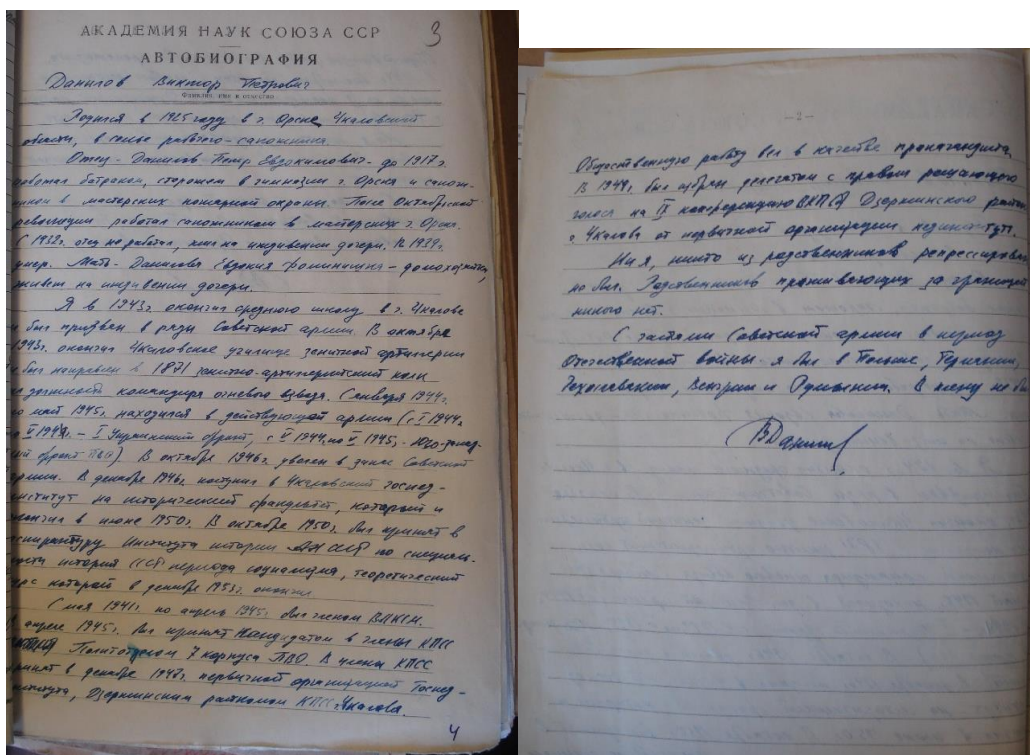 3
АКАДЕМИЯ НАУК СОЮЗА ССР
АВТОБИОГРАФИЯ
Данилов Виктор Петрович
Фамилия, имя и отчество
Родился в 1925 году в г. Орске Чкаловской
области, в семье рабочего-сапожника.
Отец - Данилов Петр Евдокимович - до 1917 г.
работал батраком, сторожем в гимназии г. Орска и сапож-
ником в мастерских пожарной охраны. После Октябрьской
революции работал сапожником в мастерских г. Орска.
С 1932 г. отец не работал, жил на иждивении дочери. В 1939 г.
умер. Мать - Данилова Евдокия Фоминишна - домохозяйка,
живет на иждивении дочери.
Я в 1943 г. окончил среднюю школу в г. Чкалове
и был призван в ряды Советской армии. В октябре
1943 г. окончил Чкаловское училище зенитной артиллерии
и был направлен в 1871 зенитно-артиллерийский полк
на должность командира огневого взвода. С января 1944 г.
по май 1945 г. находился в действующей армии (с I 1944 г.
по V 1944 г. - I Украинский фронт, с V 1944 по V 1945 г. - Юго-запад-
ный фронт ПВО). В октябре 1946 г. уволен в запас Советской
армии. В декабре 1946 г. поступил в Чкаловский госпед-
институт на исторический факультет, который и
окончил в июне 1950 г. В октябре 1950 г. был принят в
аспирантуру Института истории АН СССР по специаль-
ности история СССР периода социализма, теоретический
курс которой в декабре 1953 г. окончил
С мая 1941 г. по апрель 1945 г. был членом ВЛКСМ.
В апреле 1945 г. был принят кандидатом в члены КПСС
Политотделом 7 корпуса ПВО. В члены КПСС
принят в декабре 1947 г. первичной организацией Госпед-
института, Дзержинским райкомом КПСС г. Чкалова.
4
- 2 -
Общественную работу вел в качестве пропагандиста
В 1949 г. был избран делегатом с правом решающего
голоса на IX конференцию ВКП(б) Дзержинского района
г. Чкалова от первичной организации пединститута.
Ни я, никто из родственников репрессирован
не был. Родственников проживающих за границей
никого нет.
С частями Советской армии в период
Отечественной войны я был в Польше, Германии,
Чехословакии, Венгрии и Румынии. В плену не был
ВДанилов